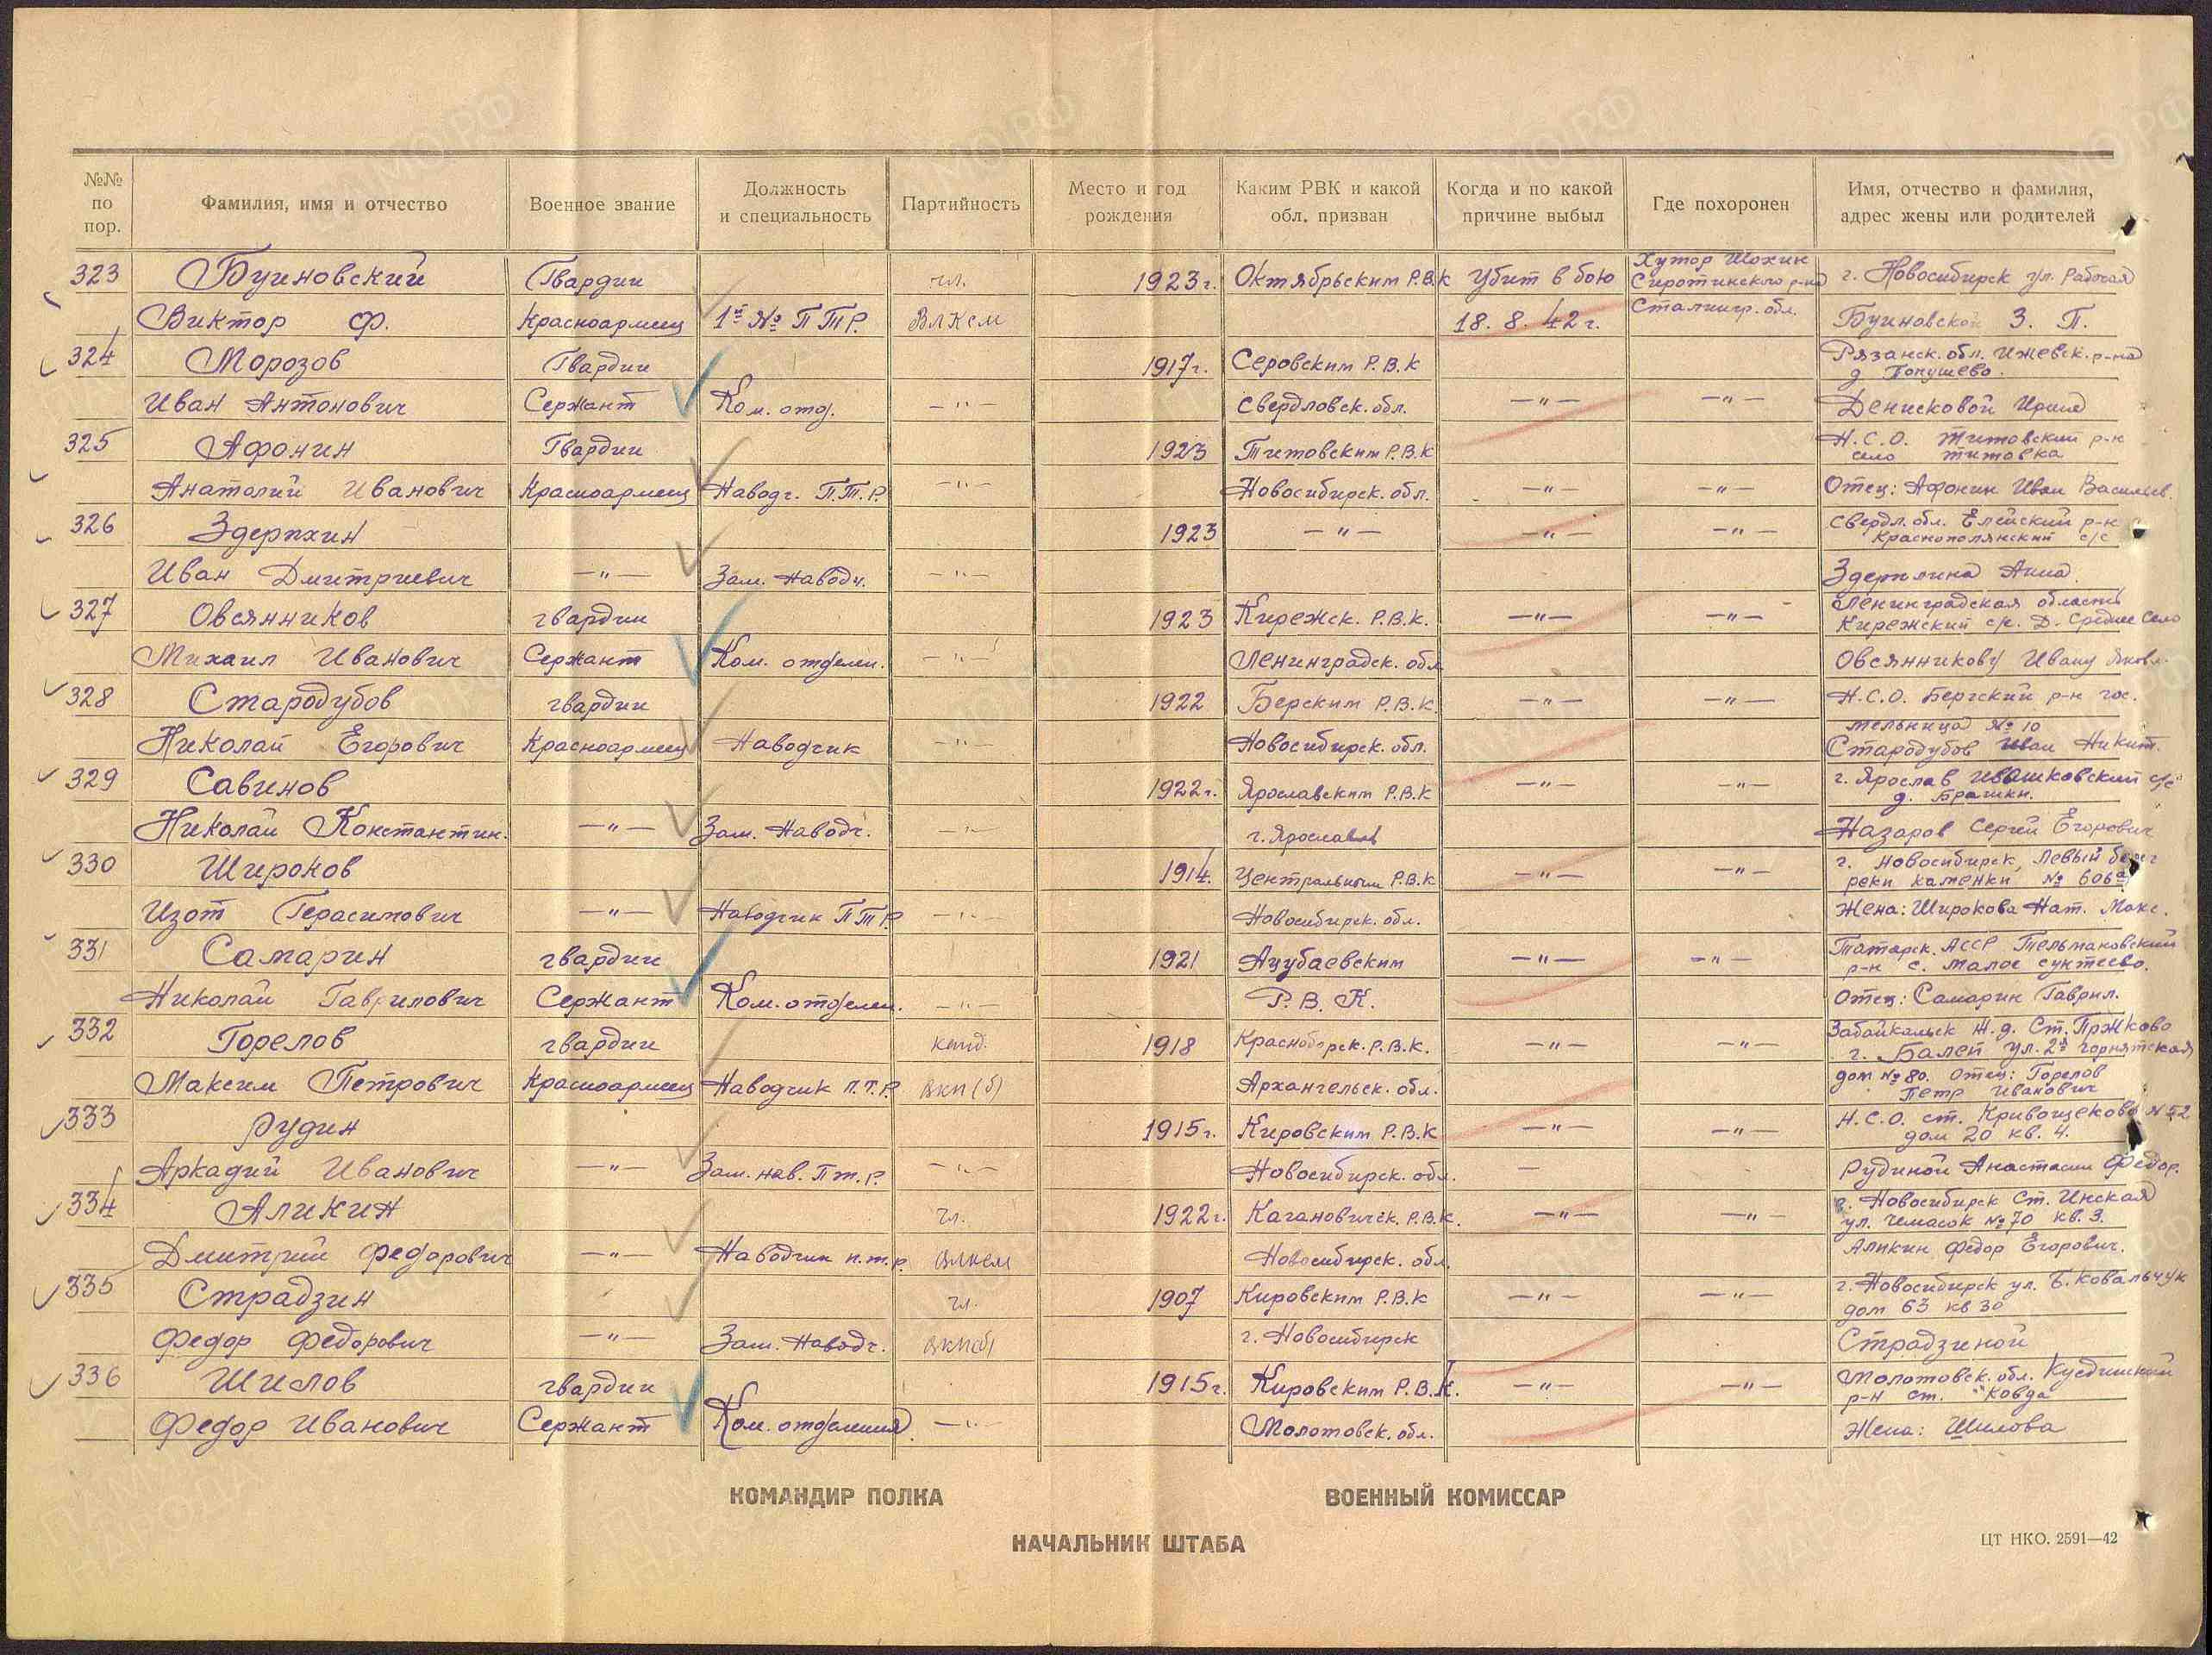 №№ по пор. | Фамилия, имя и отчество | Военное звание | Должность и специальность | Партийность | Место и год рождения | Каким РВК и какой обл. призван | Когда и по какой причине выбыл | Где похоронен | Имя, отчество и фамилия, адрес жены или родителей
323 Буиновский Гвардии чл. 1923 г. Октябрьским Р.В.К Убит в бою Хутор Шохин Сиротинского р-на г. Новосибирск ул. Рабочая
Виктор Ф. Красноармеец 1й № ПТР. ВЛКСМ 18. 8. 42 г. Сталингр. обл. Буиновской З. П.
324 Морозов Гвардии 1917 г. Серовским Р.В.К Рязанск. обл. Ижевск. р-на
д Попушево.
Иван Антонович Сержант Ком. отд. —"— Свердловск. обл. —"— —"— Денисковой Ирина
325 Афонин Гвардии 1923 Титовским Р.В.К Н.С.О. Титовский р-н
село титовка
Анатолий Иванович Красноармеец Наводч. П.Т.Р. —"— Новосибирск. обл. —"— —"— Отец: Афонин Иван Васильев.
326 1923 —"— —"— —"— Свердл. обл. Елейский р-н
Краснополянский с/с
Иван Дмитриевич —"— Зам. Наводч. —"— Анна
327 Овсянников гвардии 1923 Кирежск. Р.В.К. —"— —"— Ленинградская область
Кирежский с/с. Д. Среднее Село
Михаил Иванович Сержант Ком. отделен. —"— Ленинградск. обл Овсянникову Ивану Яковл.
328 Стародубов гвардии 1922 Берским Р.В.К. —"— —"— Н.С.О. Бергский р-н гос.
мельница № 10
Николай Егорович Красноармеец Наводчик —"— Новосибирск. обл. Стародубов Иван Никит.
329 Савинов 1922 г. Ярославским Р.В.К —"— —"— г. Ярослав Ивашковский с/с
д. Брагин.
Николай Константин. —"— Зам. Наводч. —"— г. Ярославль Назаров Сергей Егорович
330 Широков 1914. Центральным Р.В.К —"— —"— г. Новосибирск, Левый берег
реки каменки № 606а
Изот Герасимович —"— Наводчик ПТР. —"— Новосибирск. обл. Жена: Широкова Нат. Макс.
331 Самарин гвардии 1921 Ацубаевским —"— —"— Татарск. АССР Тельмановский
р-н с. Малое сунтеево.
Николай Гаврилович Сержант Ком. отделен. —"— Р. В. К. Отец: Самарин Гаврил.
332 Горелов гвардии канд. 1918 Красноборск. Р.В.К. —"— —"— Забайкальск ж.д. Ст. Пржково
г. Балей ул. 2я горнятская
Максим Петрович Красноармеец Наводчик П.Т.Р. ВКП(б) Архангельск. обл. дом № 80. отец: Горелов
Петр Иванович
333 Рудин 1915 г. Кировским Р.В.К —"— —"— Н.С.О. ст. Кривощеково № 52
дом 20 кв. 4.
Аркадий Иванович —"— Зам. нав. Пт.р. —"— Новосибирск. обл. — Рудиной Анастасии Федор.
334 Аликин чл. 1922 г. Кагановичск. Р.В.К. —"— —"— г. Новосибирск Ст. Инская
ул. № 70 кв. 3.
Дмитрий Федорович —"— Наводчик п.т.р. влксм Новосибирск. обл. Аликин Федор Егорович.
335 Страдзин чл. 1907 Кировским Р.В.К —"— —"— г. Новосибирск ул. Б. Ковальчук
дом 63 кв 30
Федор Федорович —"— Зам. Наводч. ВКП(б) г. Новосибирск Страдзиной
336 Шилов гвардии 1915 г. Кировским Р.В.К. —"— —"— Молотовск. обл.
р-н ст. "Ковда
Федор Иванович Сержант Ком. отделения —"— Молотовск. обл. Жена: Шилова
КОМАНДИР ПОЛКА ВОЕННЫЙ КОМИССАР
НАЧАЛЬНИК ШТАБА
ЦТ НКО. 2591—42